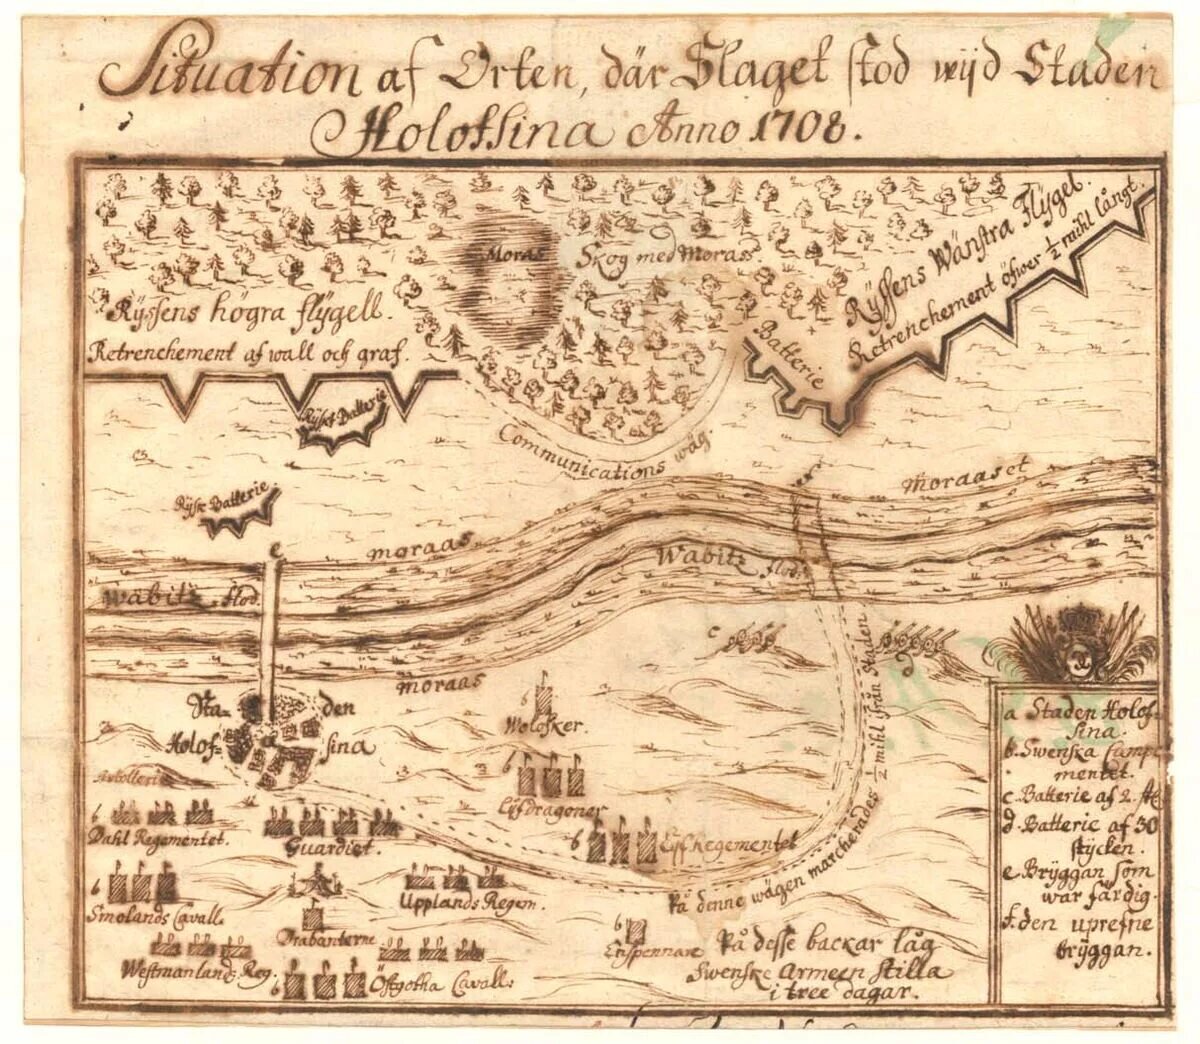 Situation af Orten, där Slaget stod wijd Staden
Holofsina Anno 1708.
Moras
Skog med Moras.
Ryssens högra flygell.
Retrenchement af wall och graf.
Rysk Batterie
Rysk Batterie
Batterie
Ryssens Wänstra Flygel.
Retrenchement öfwer 1/2 mihl långt.
Communications wäg
moraaset
moraas
Wabitz flod.
Wabitz flod.
moraas
e
c
d
Staden
Holofsina
a
Wolosker
6
Lifdragoner
6
Artollerie
6
Dahl Regementet.
Guardiet
6
Lifs Regementet
På denne wägen marcherades 1/2 mihl ifrån Staden
6
Smolands Cavall.
Upplands Regem.
Trabanterne
6
Enspennare
Westmanlands Reg.
6
Östgotha Cavall.
På desse backar låg
Swenske Armeen stilla
i tree dagar.
a Staden Holof-
sina.
b. Swenska Campe-
mentet.
c Batterie af 2. st
d. Batterie af 30
stycken.
e Bryggan som
war färdig.
f. den uprefne
bryggan.